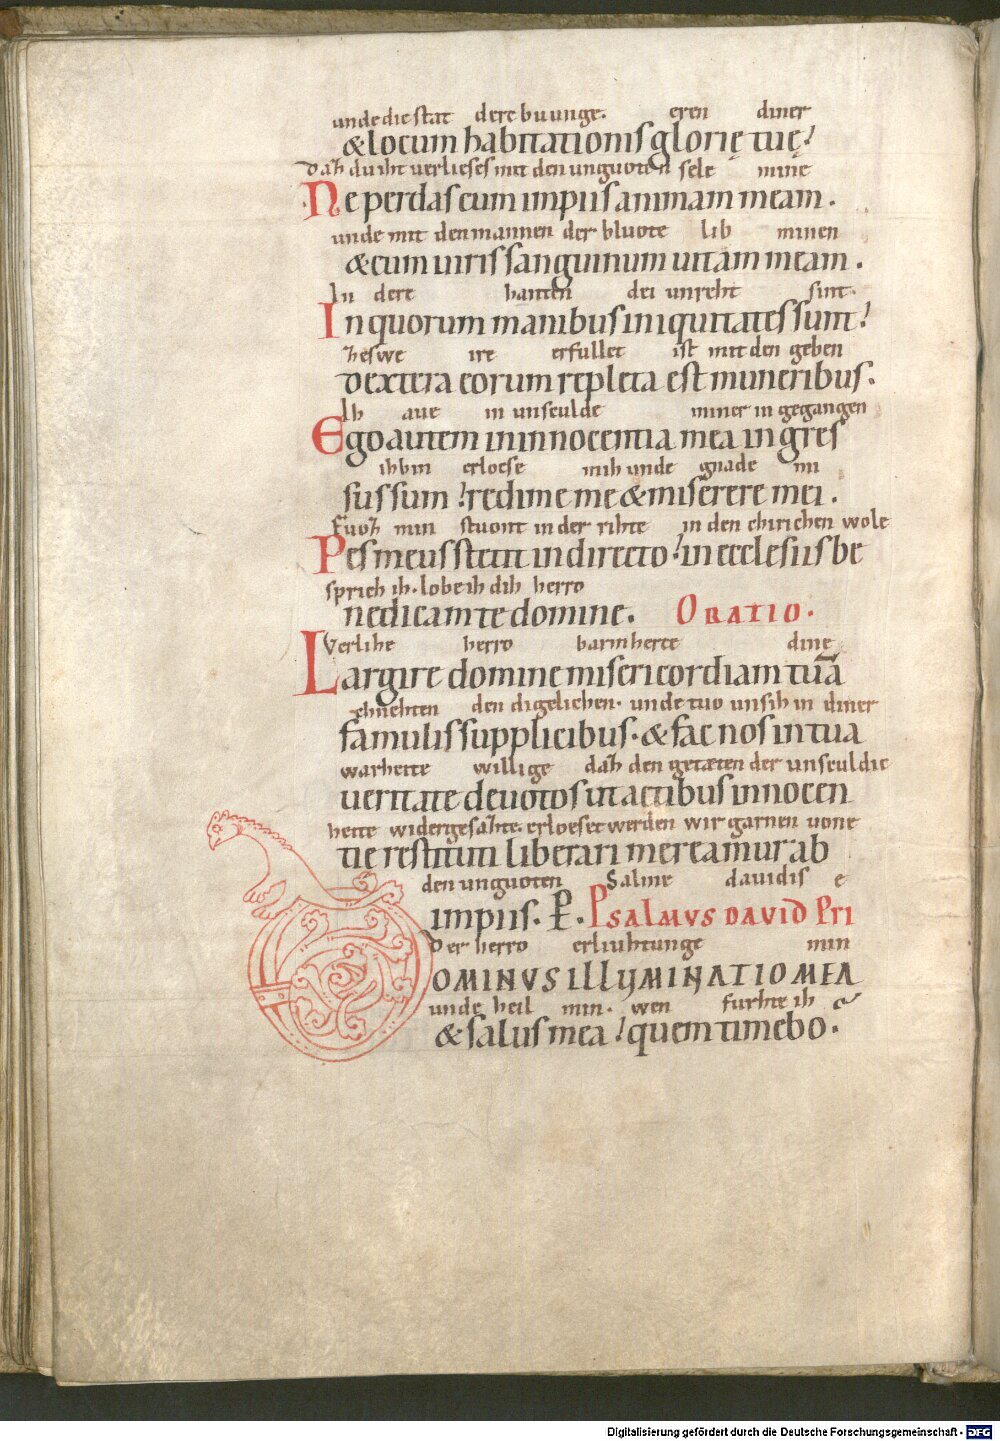 unde die stat dere buunge. eren diner
& locum habitationis glorię tuę?
daz du iht verlieses mit den unguoten sele mine
Ne perdas cum impiis animam meam.
unde mit den mannen der bluote lib minen
& cum uiris sanguinum uitam meam.
In dere hanten dei unreht sint.
In quorum manibus iniquitates sunt?
zeswe ire erfullet ist mit den geben
dextera eorum repleta est muneribus.
Ih aue in unsculde miner in gegangen
Ego autem in innocentia mea ingres
ih bin erloese mih unde gnade mi
sus sum? redime me & miserere mei.
Fuoz min stuont in der rihte in den chirichen wole
Pes meus stetit in directo? in ecclesiis be
sprich ih. lobe ih dih herro
nedicam te domine. ORATIO.
Verlihe herro barmherce dine
Largire domine misericordiam tuā
chnehten den digelichen. unde tuo unsih in diner
famulis supplicibus. & fac nos in tua
warheite willige daz den getæten der unsculdic
ueritate deuotos ut actibus innocen
heite widergesazte. erloeset werden wir garnen uone
tie restituti liberari mereamur ab
den unguoten Salme dauidis e
impiis. P. PSALMVS DAVID PRI
Der herro erliuhtunge min
DOMINVS ILLVMINATIO MEA
unde heil min. wen furhte ih
& salus mea? quem timebo.
Digitalisierung gefördert durch die Deutsche Forschungsgemeinschaft - DFG